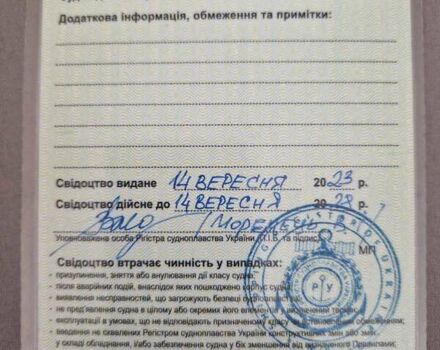 Додаткова інформація, обмеження та примітки:
Свідоцтво видане 14 ВЕРЕСНЯ 2023 р.
Свідоцтво дійсне до 14 ВЕРЕСНЯ 2028 р.
Уповноважена особа Регістра судноплавства України (П.І.Б. та підпис)
МП
Свідоцтво втрачає чинність у випадках:
- призупинення, зняття або анулювання дії класу судна;
- після аварійних подій, внаслідок яких пошкоджено корпус судна;
- виявлення несправностей, що загрожують безпеці судноплавства;
- не пред'явлення судна в цілому або окремих його елементів у визначений термін;
- експлуатації в умовах, що не відповідають призначеному класу або встановленим обмеженням;
- введення не схвалених Регістром судноплавства конструктивних змін або змін
у складі обладнання, і/або забезпечення судна у бік зменшення від визначеного Правилами.